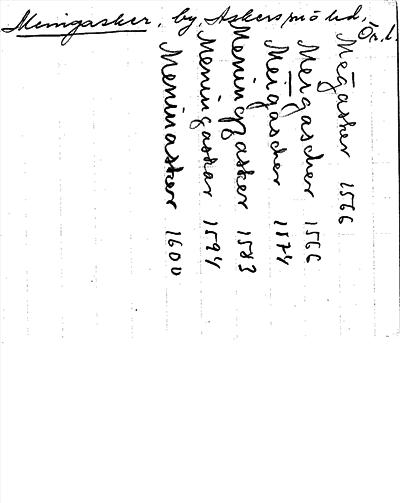 Meningasker, by, Askers sn o hd, Ör. l.
Mēgasker 1566
Meīgascher 1566
Meīgascher 1574
Meningzasker 1583
Meningaskar 1594
Meninasker 1600